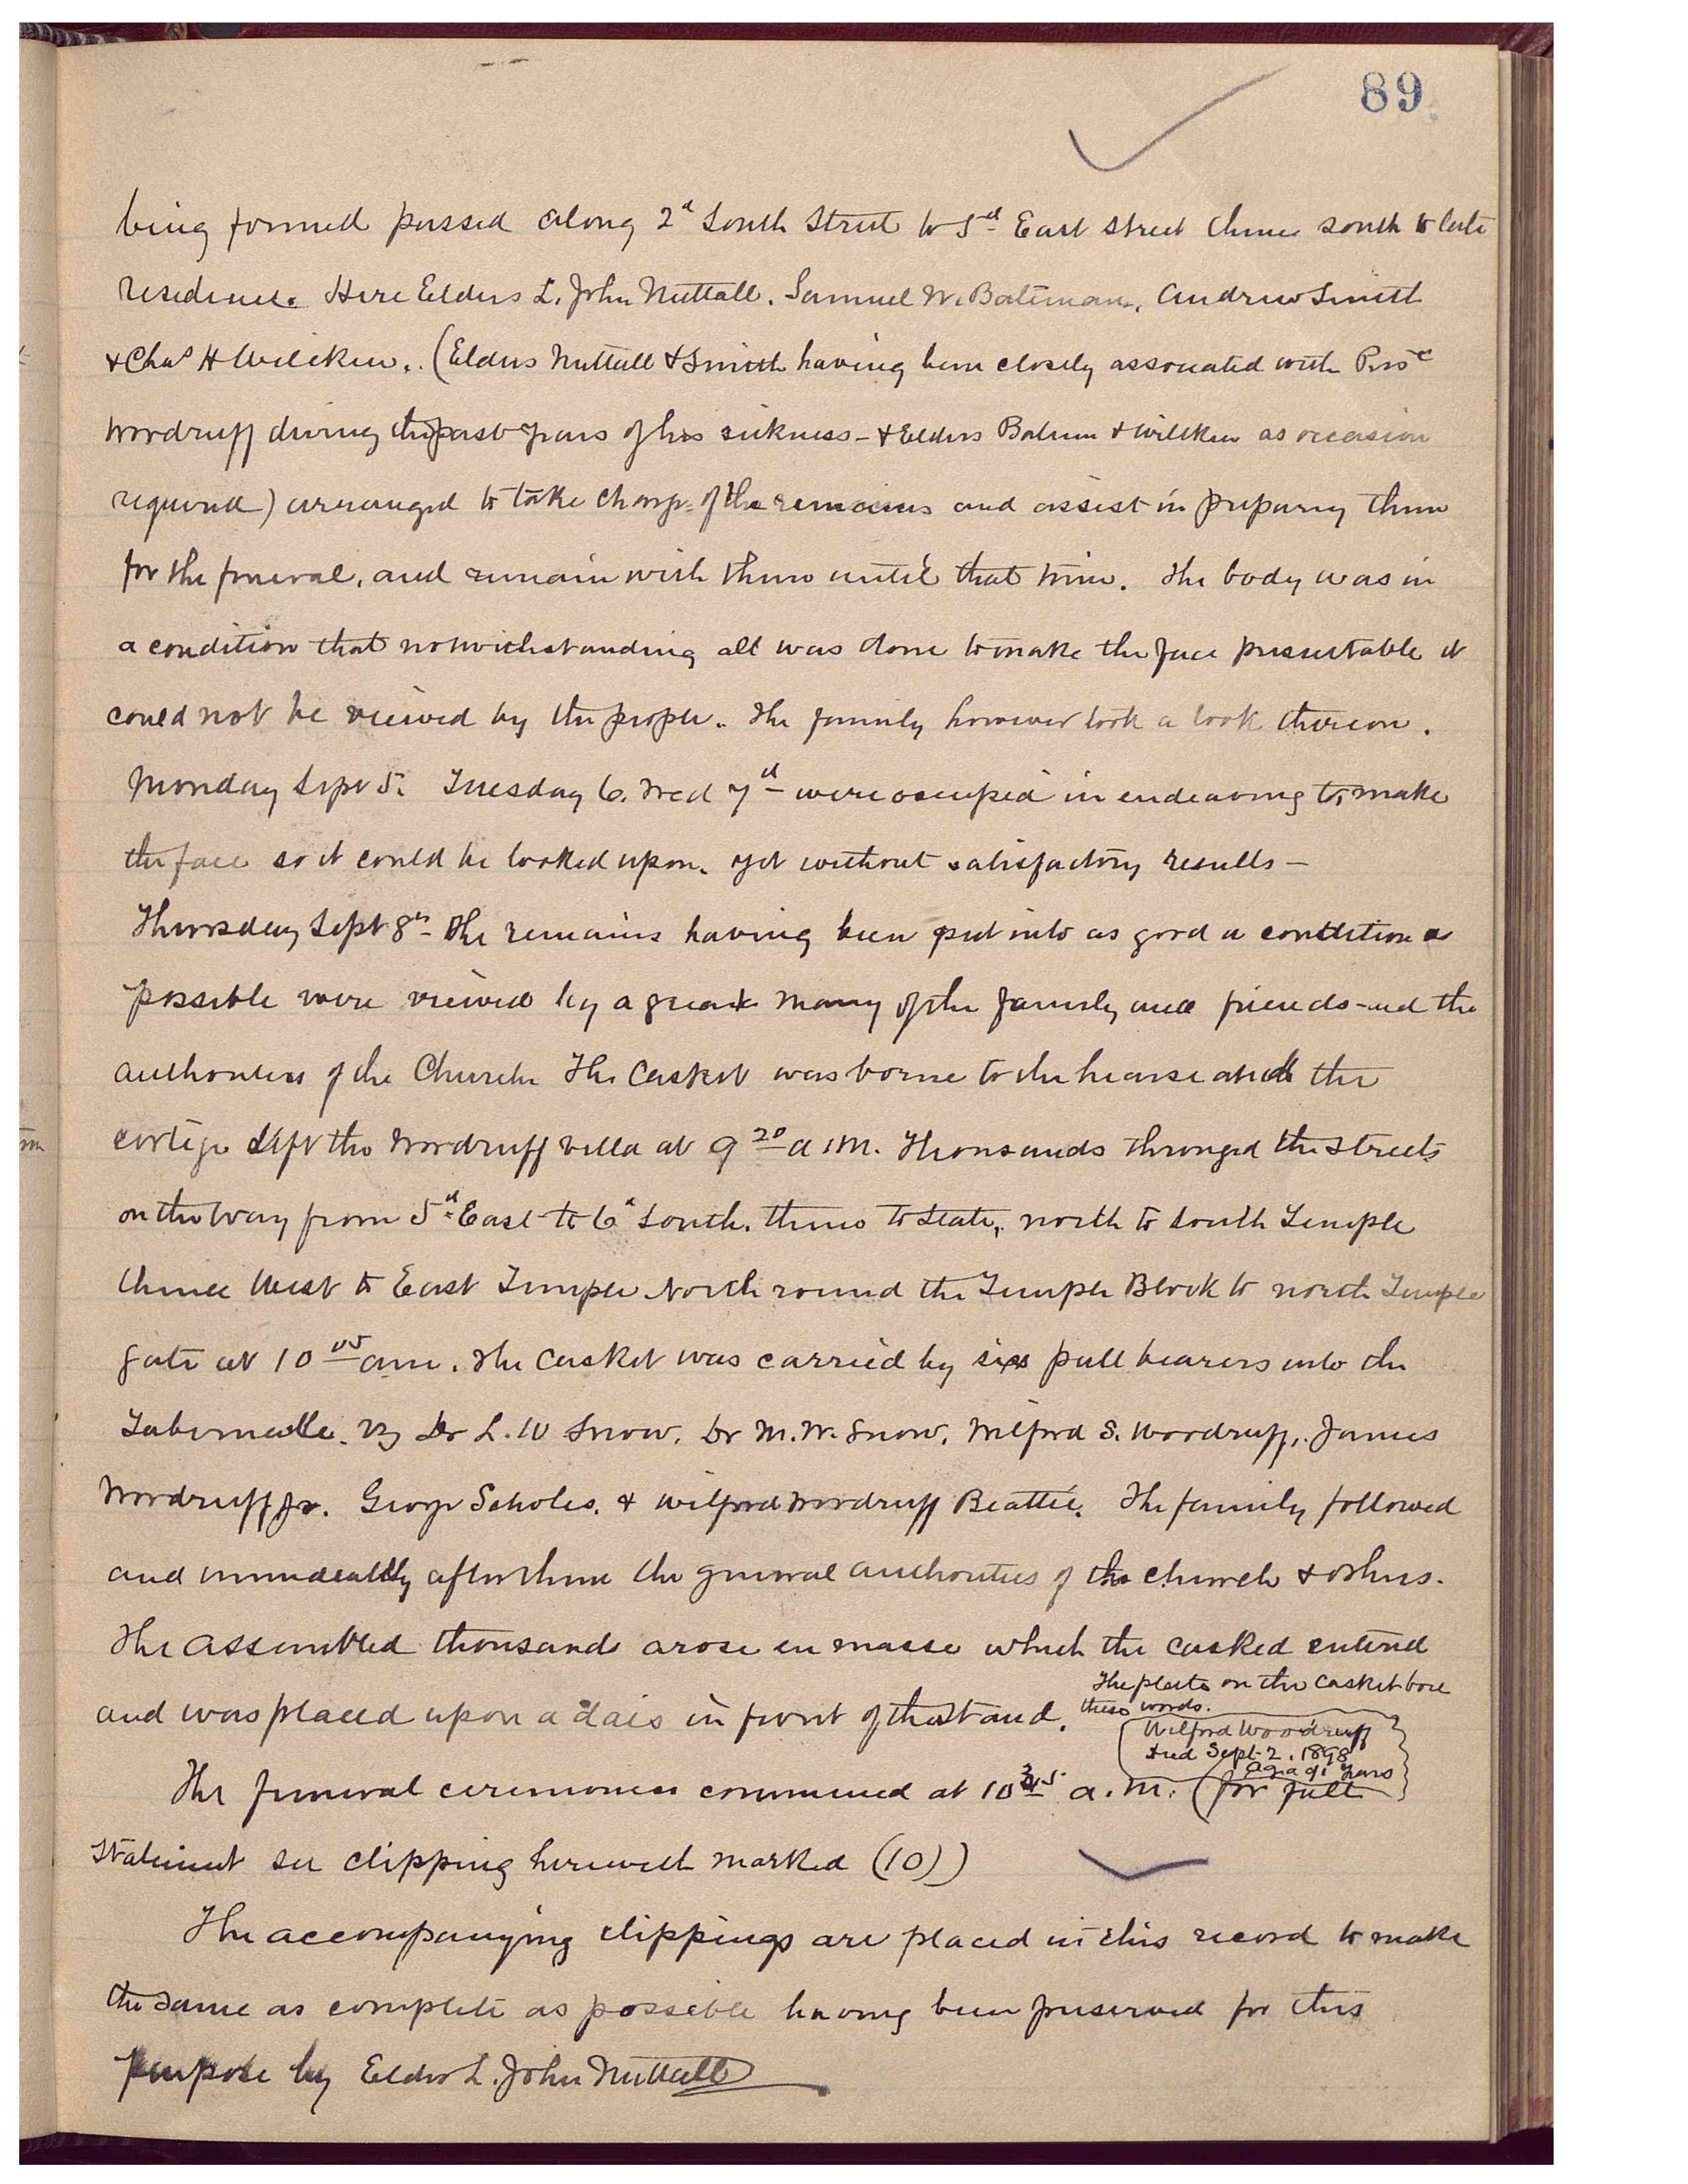 89
being formed passed along 2d South Street to 5d East Street thence south to late
residence. Here Elders L. John Nuttall. Samuel W. Bateman. Andrew Smith
& Chas H Wilcken. (Elders Nuttall & Smith having been closely associated with Prest
Woodruff during the past years of his sickness - & Elders Batman & Wilcken as occasion
required) arranged to take charge of the remains and assist in preparing them
for the funeral, and remain with them until that time. The body was in
a condition that notwithstanding all was done to make the face presentable it
could not be viewed by the people. The family however took a look thereon.
Monday Sept 5. Tuesday 6. Wed 7d were occupied in endeavoring to make
the face so it could be looked upon. yet without satisfactory results -
Thursday Sept 8th The remains having been put into as good a condition as
possible were viewed by a great many of the family and friends - and the
authorities of the Church The Casket was borne to the hearse and the
cortege left the Woodruff villa at 9 20 a.m. Thousands thronged the streets
on the way from 5d East to 6d South. thence to State, north to South Temple
thence West to East Temple North round the Temple Block to north Temple
gate at 10 05 am. The Casket was carried by six pall bearers into the
Tabernacle. by Dr L. W Snow. Dr M. W. Snow. Wilford S. Woodruff, James
Woodruff Jr. George Scholes. & Wilford Woodruff Beattie. The family followed
and immediately after them the general authorities of the church & others.
The assembled thousands arose en masse which the casked entered
and was placed upon a dais in front of the Stand.
The plate on the casket bore
these words.
Wilford Woodruff
Died Sept. 2. 1898
Aged 91 years
The funeral ceremonies commenced at 10 a.m. (for full
statement see clipping herewith marked (10))
The accompanying clippings are placed in this record to make
the same as complete as possible having been preserved for this
purpose by Elder L. John Nuttall